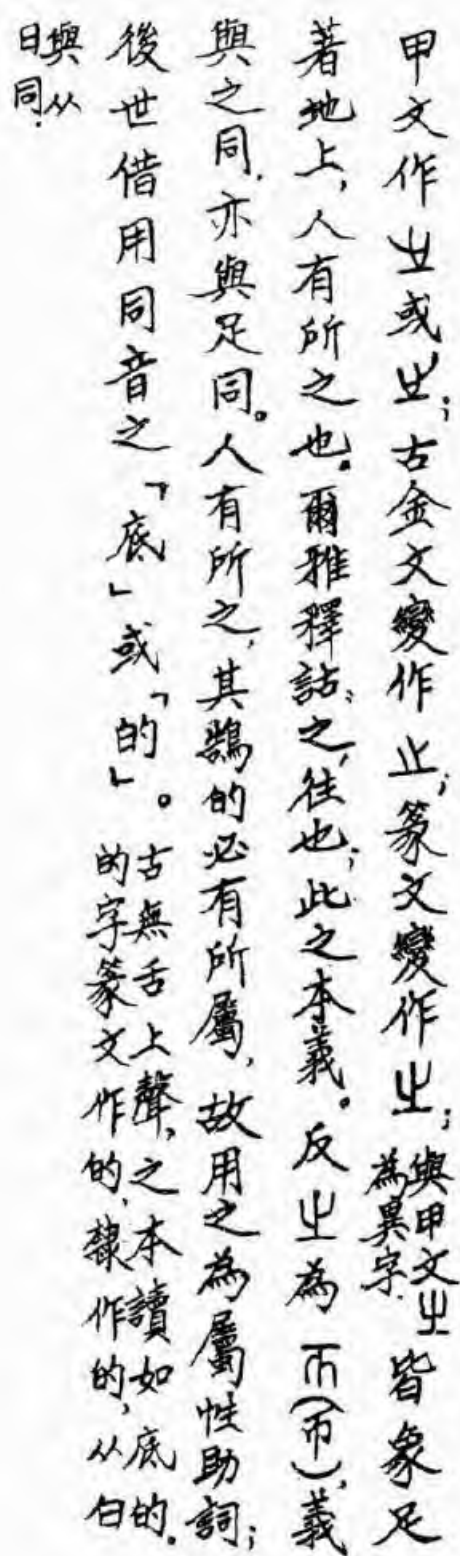 甲文作㞢或㞢；古金文變作止；篆文變作㞢；與甲文㞢為異字.皆象足
著地上，人有所之也。爾雅釋詁：之，往也；此之本義。反㞢為帀(帀)，義
與之同，亦與足同。人有所之，其鵠的必有所屬，故用之為屬性助詞；
後世借用同音之「底」或「的」。古無舌上聲，之本讀如底的。的字篆文作的，隸作的，从白
與从日同.